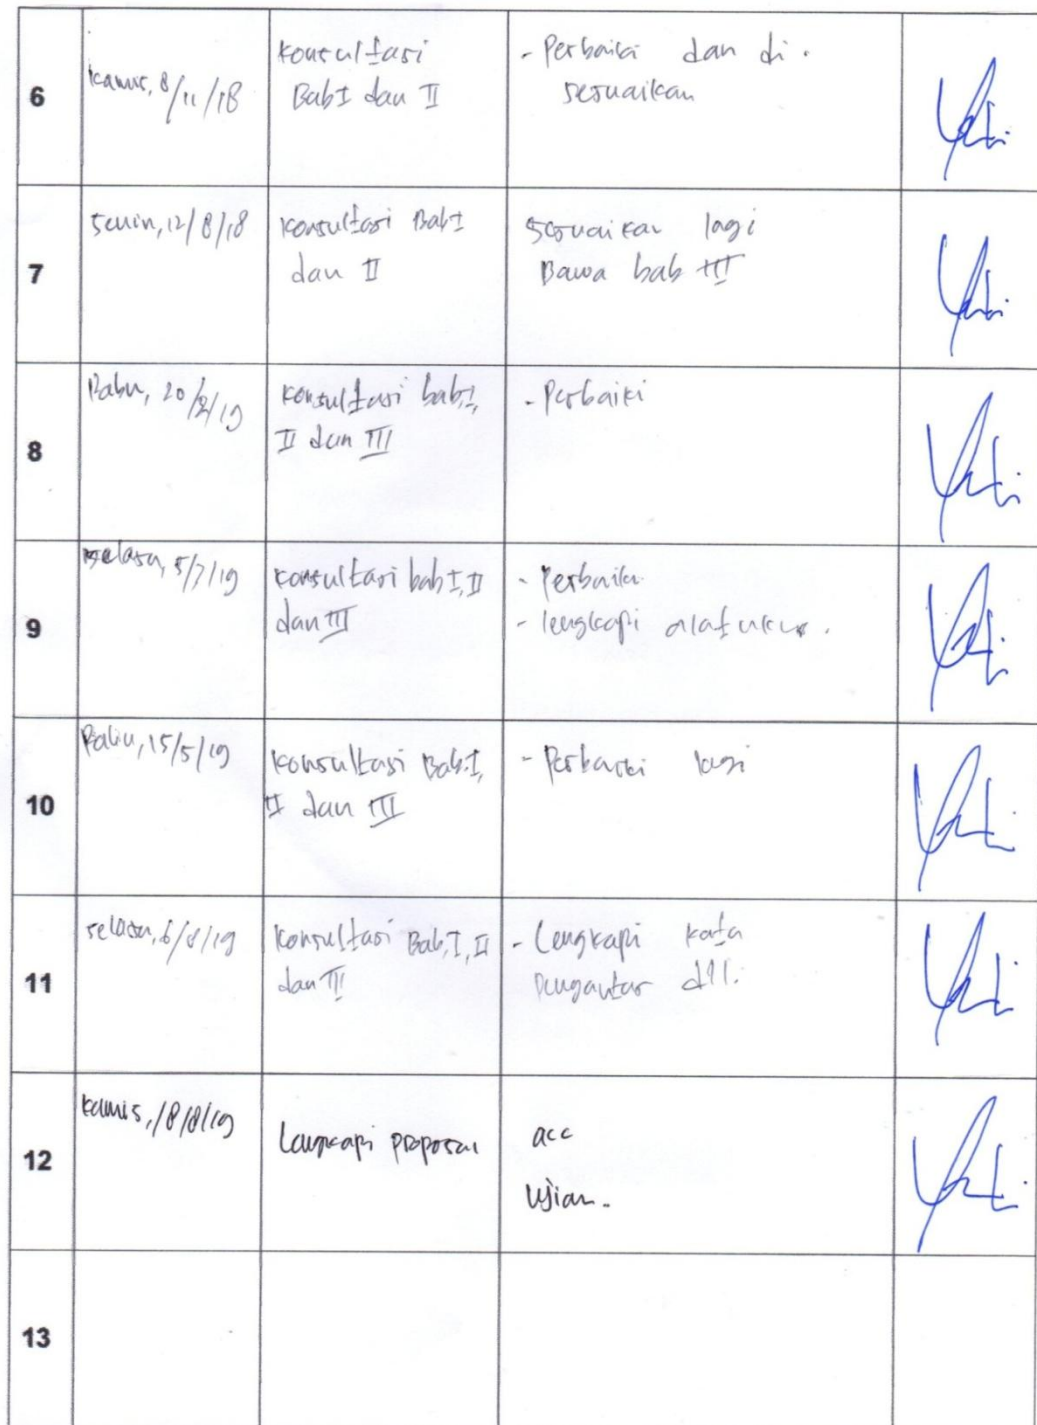 6
Kamis, 8/11/18
Konsultasi
Bab I dan II
- Perbaiki dan di.
sesuaikan
7
Senin, 12/8/18
Konsultasi Bab I
dan II
Sesuaikan lagi
Bawa bab III
8
Rabu, 20/2/19
Konsultasi bab I,
II dan III
- Perbaiki
9
Selasa, 5/7/19
Konsultasi bab I, II
dan III
- Perbaiki
- lengkapi alat ukur.
10
Rabu, 15/5/19
Konsultasi Bab I,
II dan III
- Perbaiki lagi
11
Selasa, 6/8/19
Konsultasi Bab I, II
dan III
- Lengkapi kata
pengantar dll.
12
Kamis, /8/8/19
Lengkapi proposal
acc
Ujian.
13